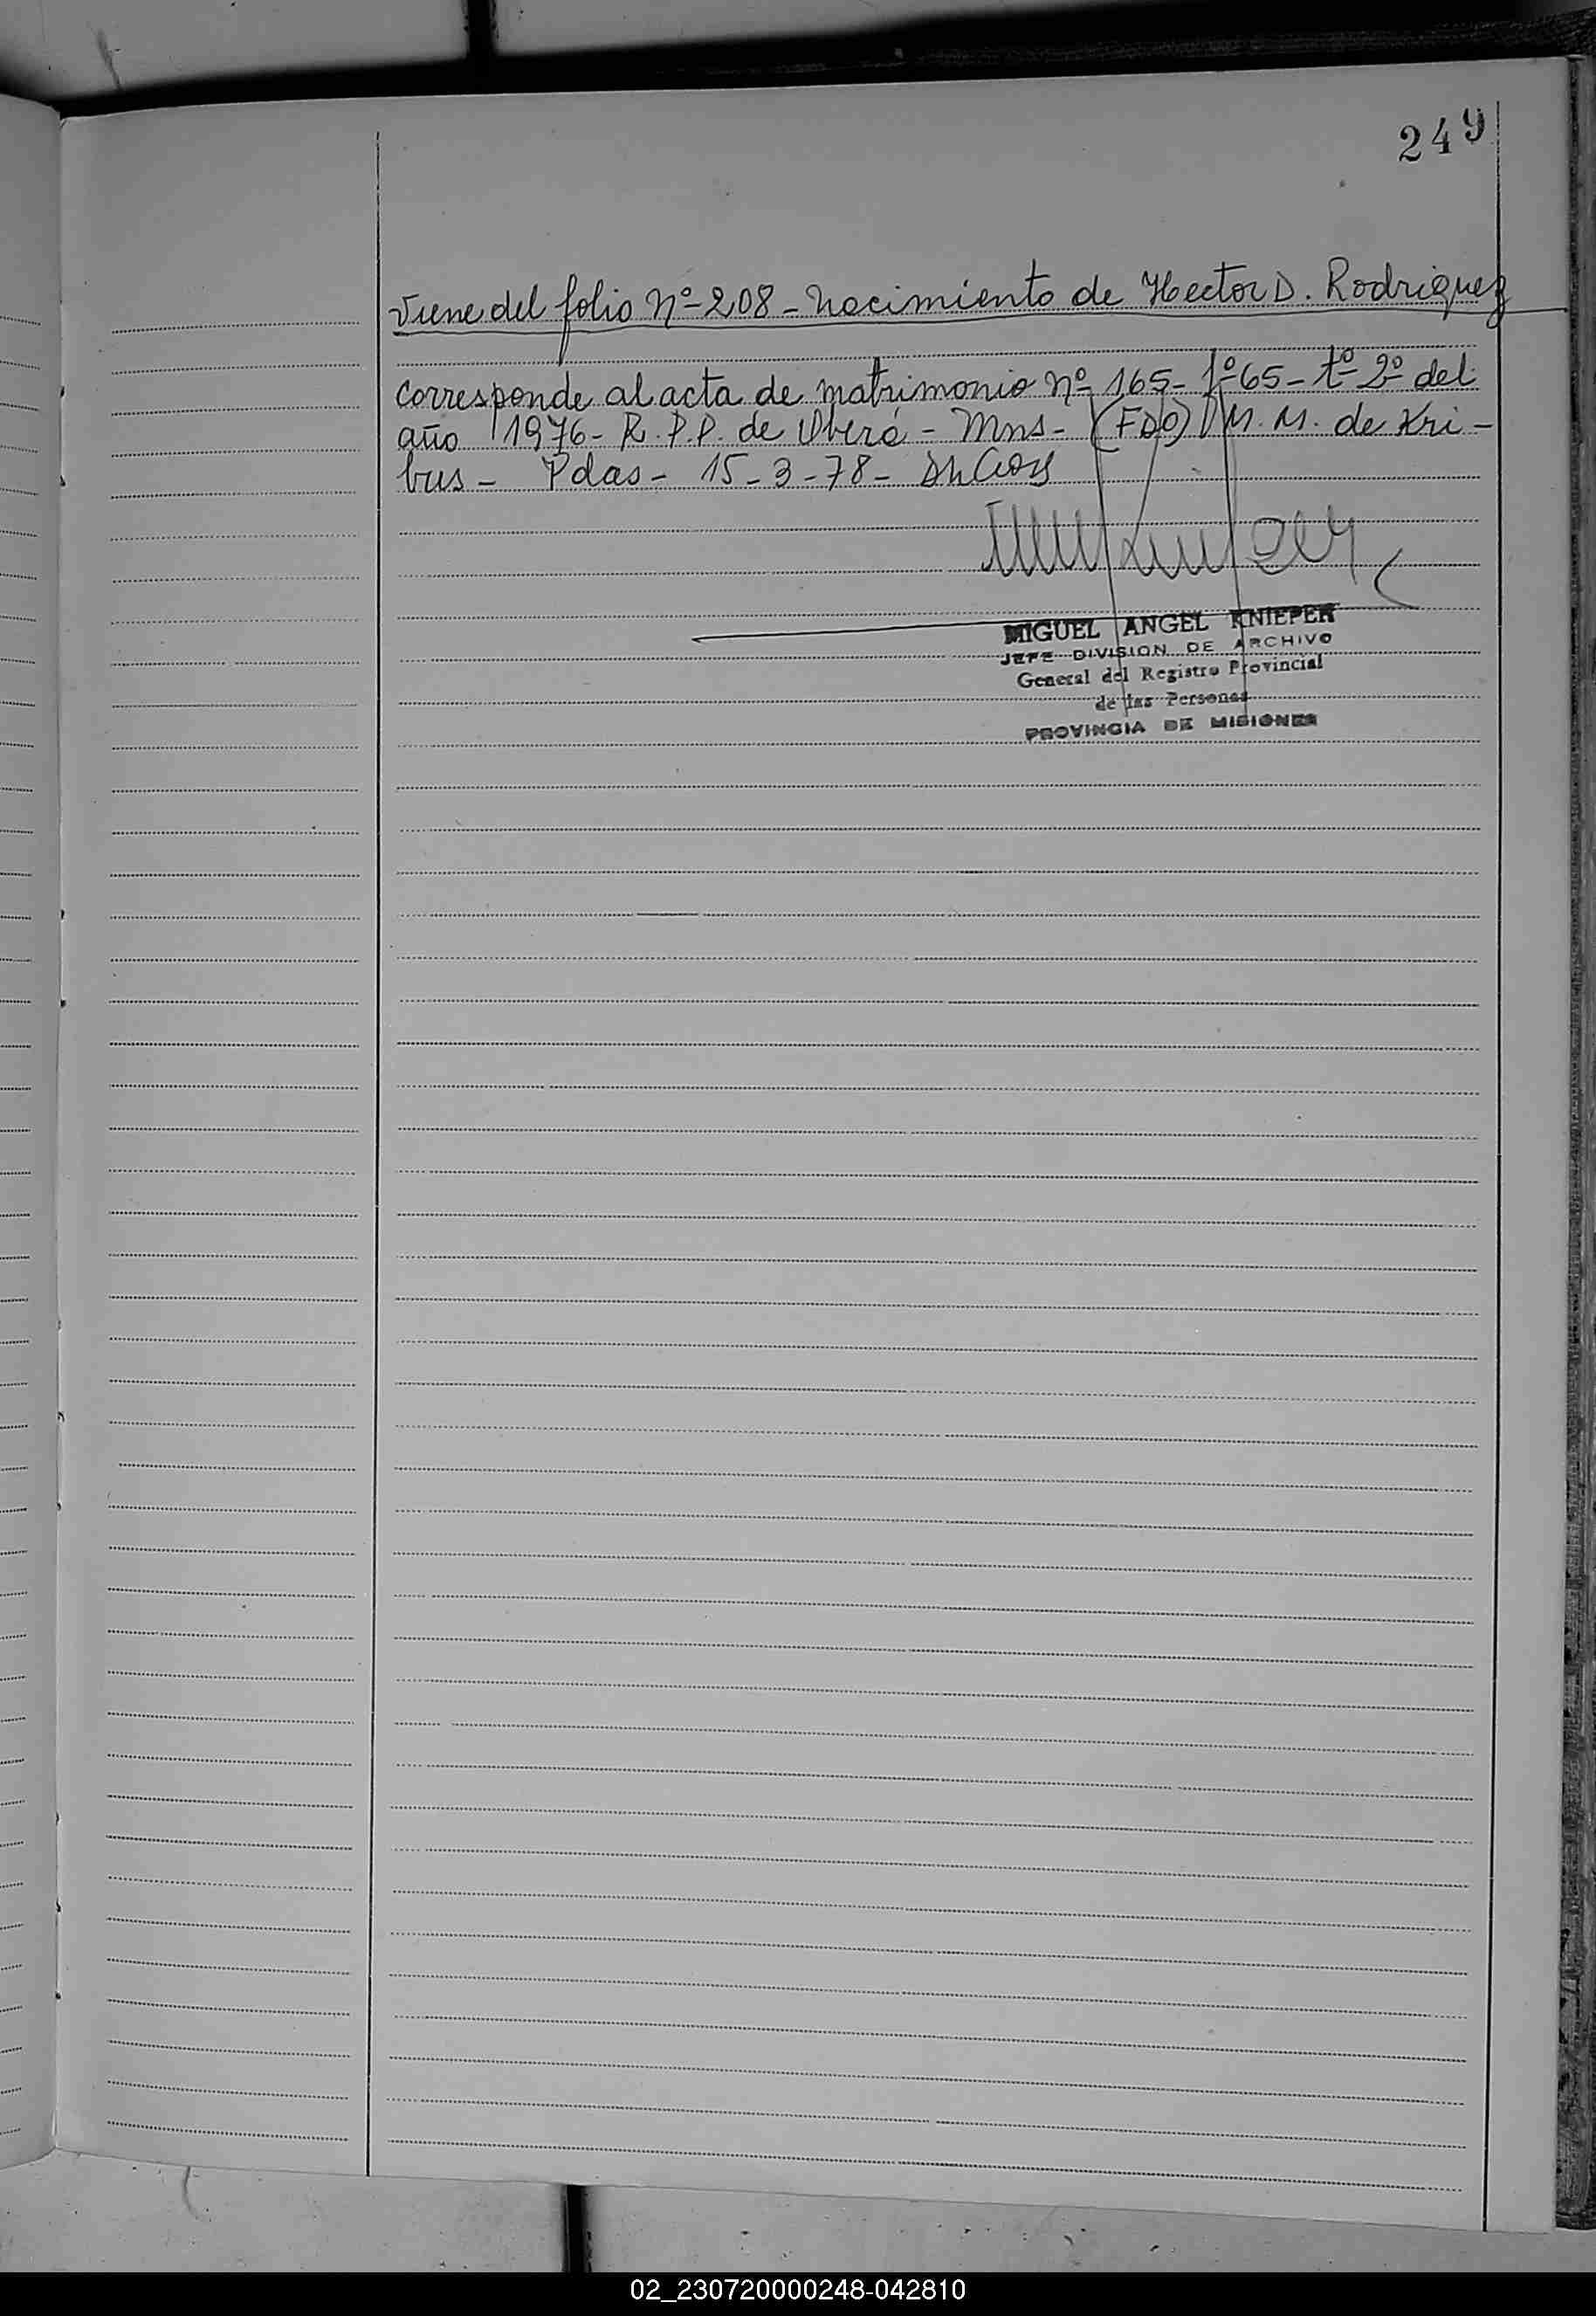 249
Viene del folio Nº-208- Nacimiento de Hector D. Rodriguez
corresponde al acta de matrimonio nº 165- fº 65- tº 2º del
año 1976- R.P.P. de Oberá - Mns- (FDO) M.M. de Kri-
bus- Pdas- 15-3-78-
MIGUEL ANGEL KNIEPER
JEFE DIVISION DE ARCHIVO
General del Registro Provincial
de las Personas
PROVINCIA DE MISIONES
02_230720000248-042810